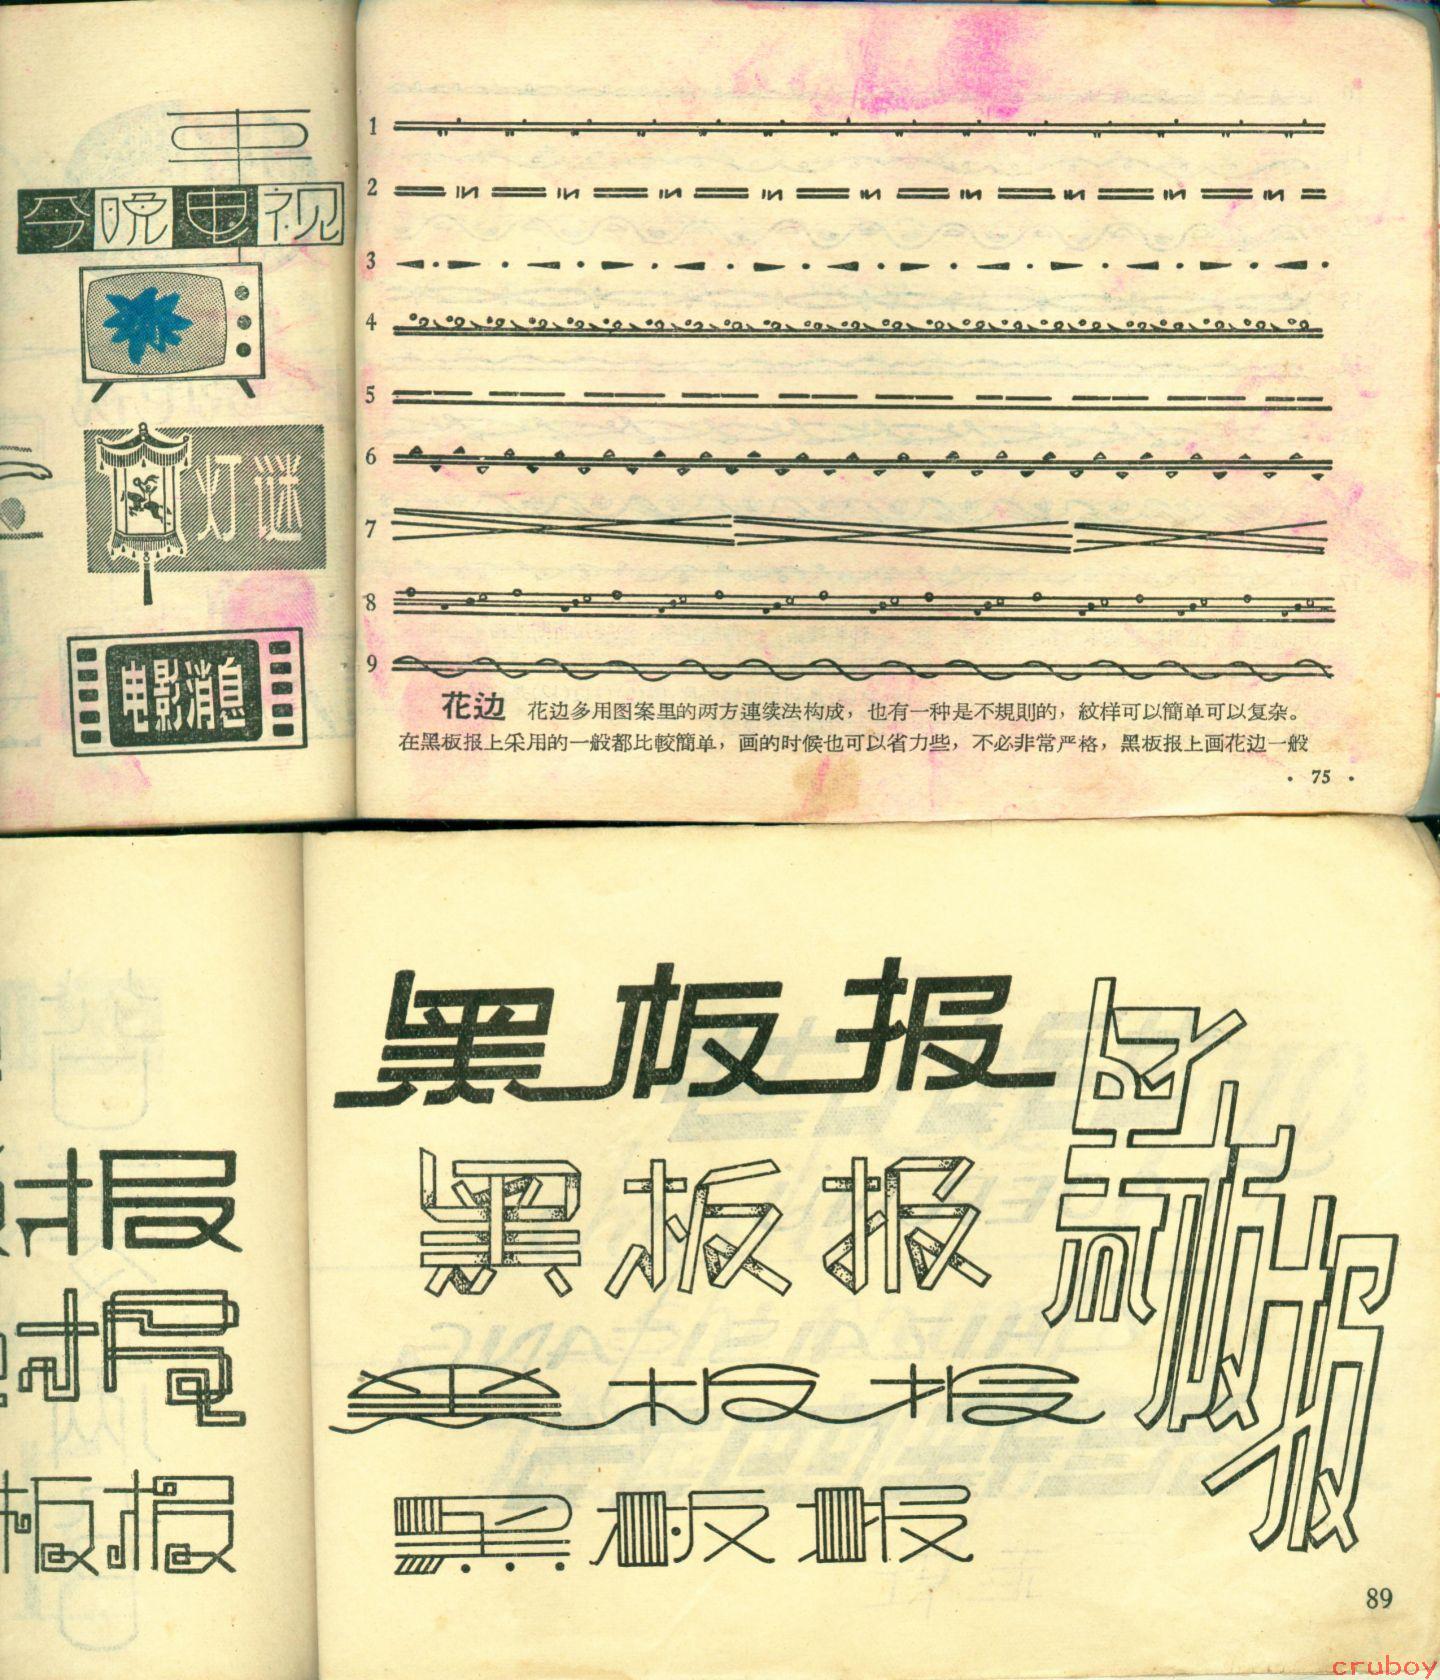 今晚电视
灯谜
电影消息
1
2
3
4
5
6
7
8
9
花边 花边多用图案里的两方連续法构成，也有一种是不規則的，紋样可以簡单可以复杂。
在黑板报上采用的一般都比較簡单，画的时候也可以省力些，不必非常严格，黑板报上画花边一般
· 75 ·
黑板报
黑板报
黑板报
黑板报
黑板报
报
报
板报
89
cruboy